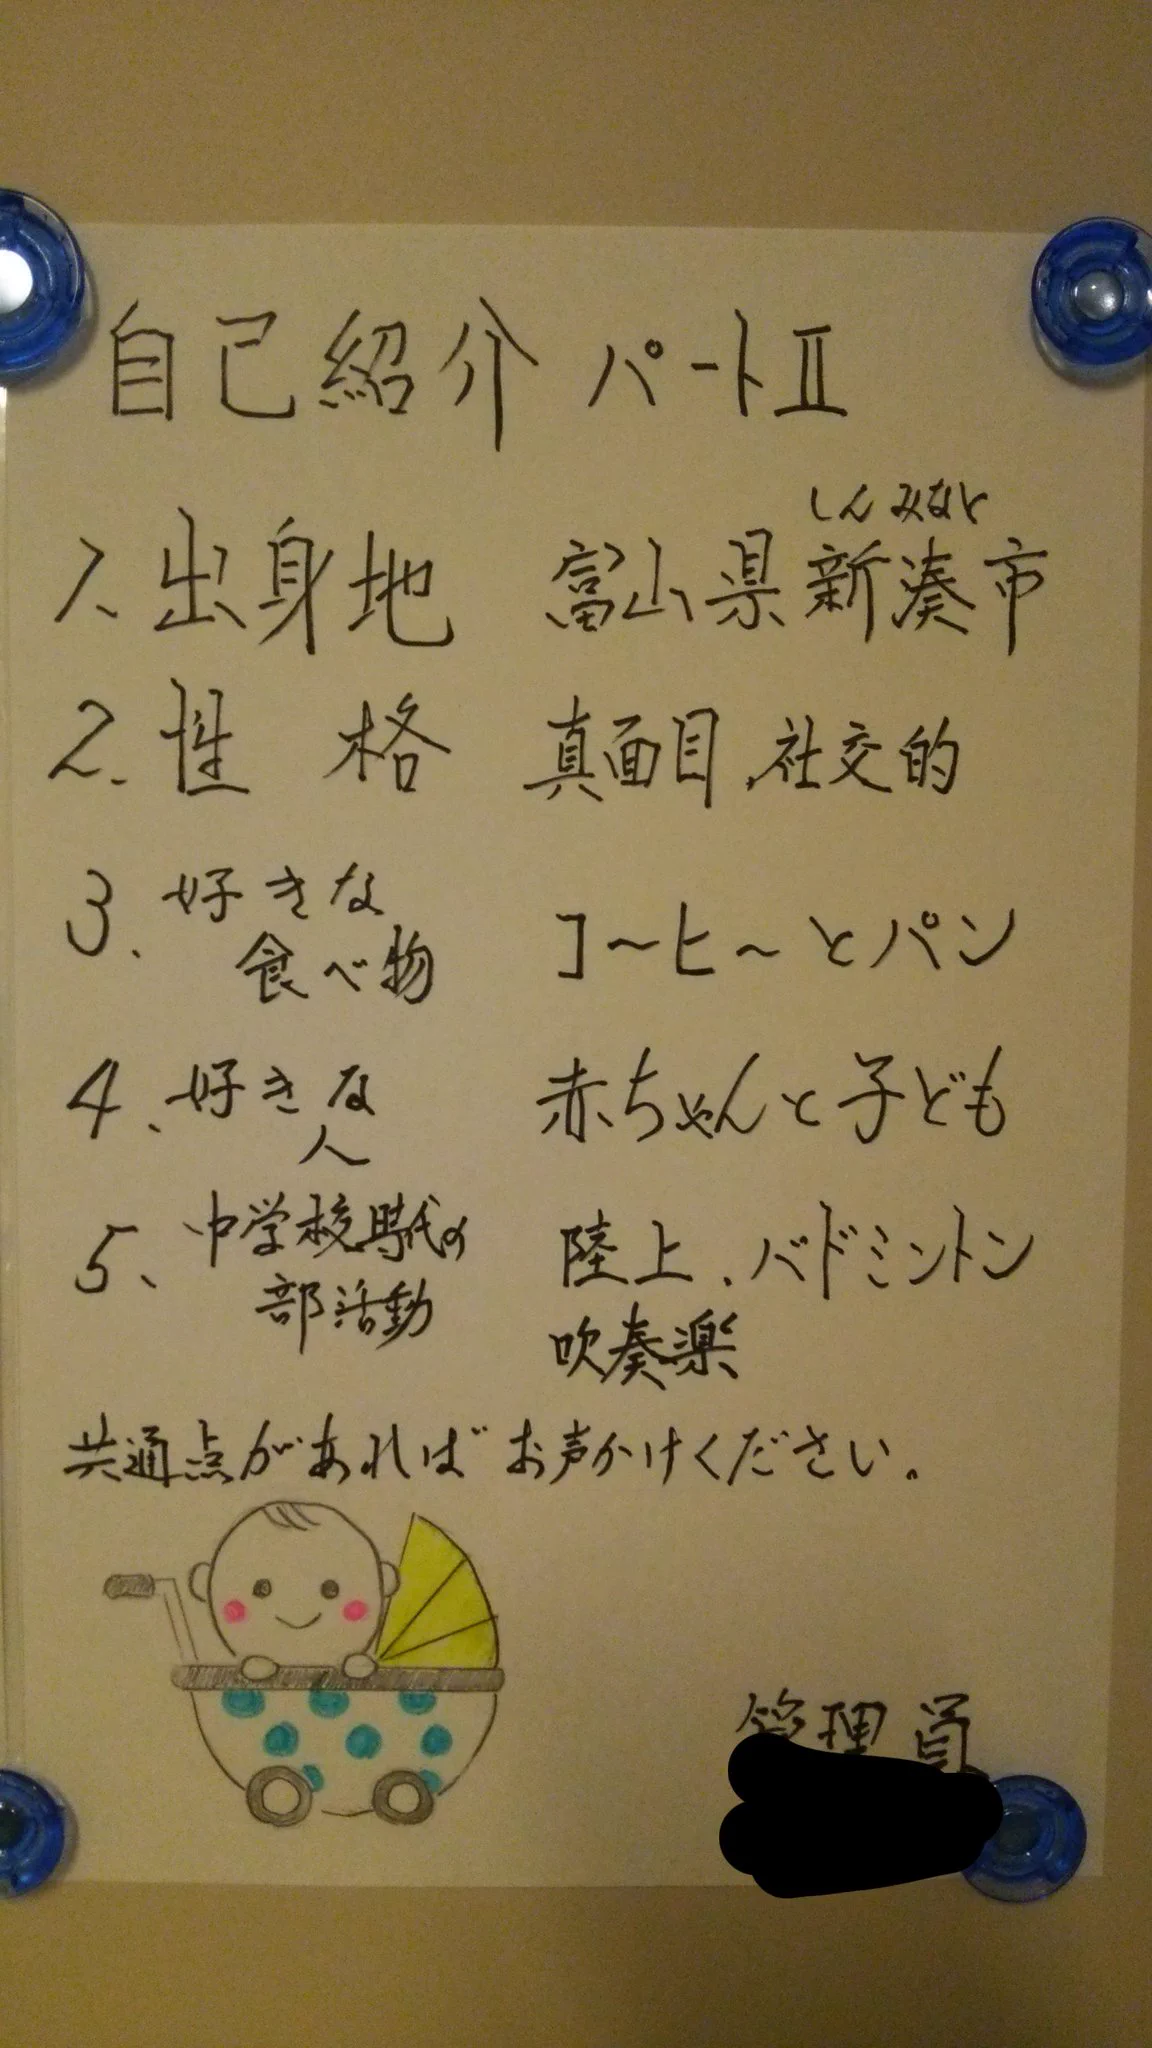 自己紹介 パートⅡ
しんみなと
1、出身地 富山県新湊市
2、性格 真面目、社交的
3、好きな
食べ物 コ〜ヒ〜とパン
4、好きな
人 赤ちゃんと子ども
5、中学校時代の
部活動 陸上、バドミントン
吹奏楽
共通点があればお声かけください。
管理員